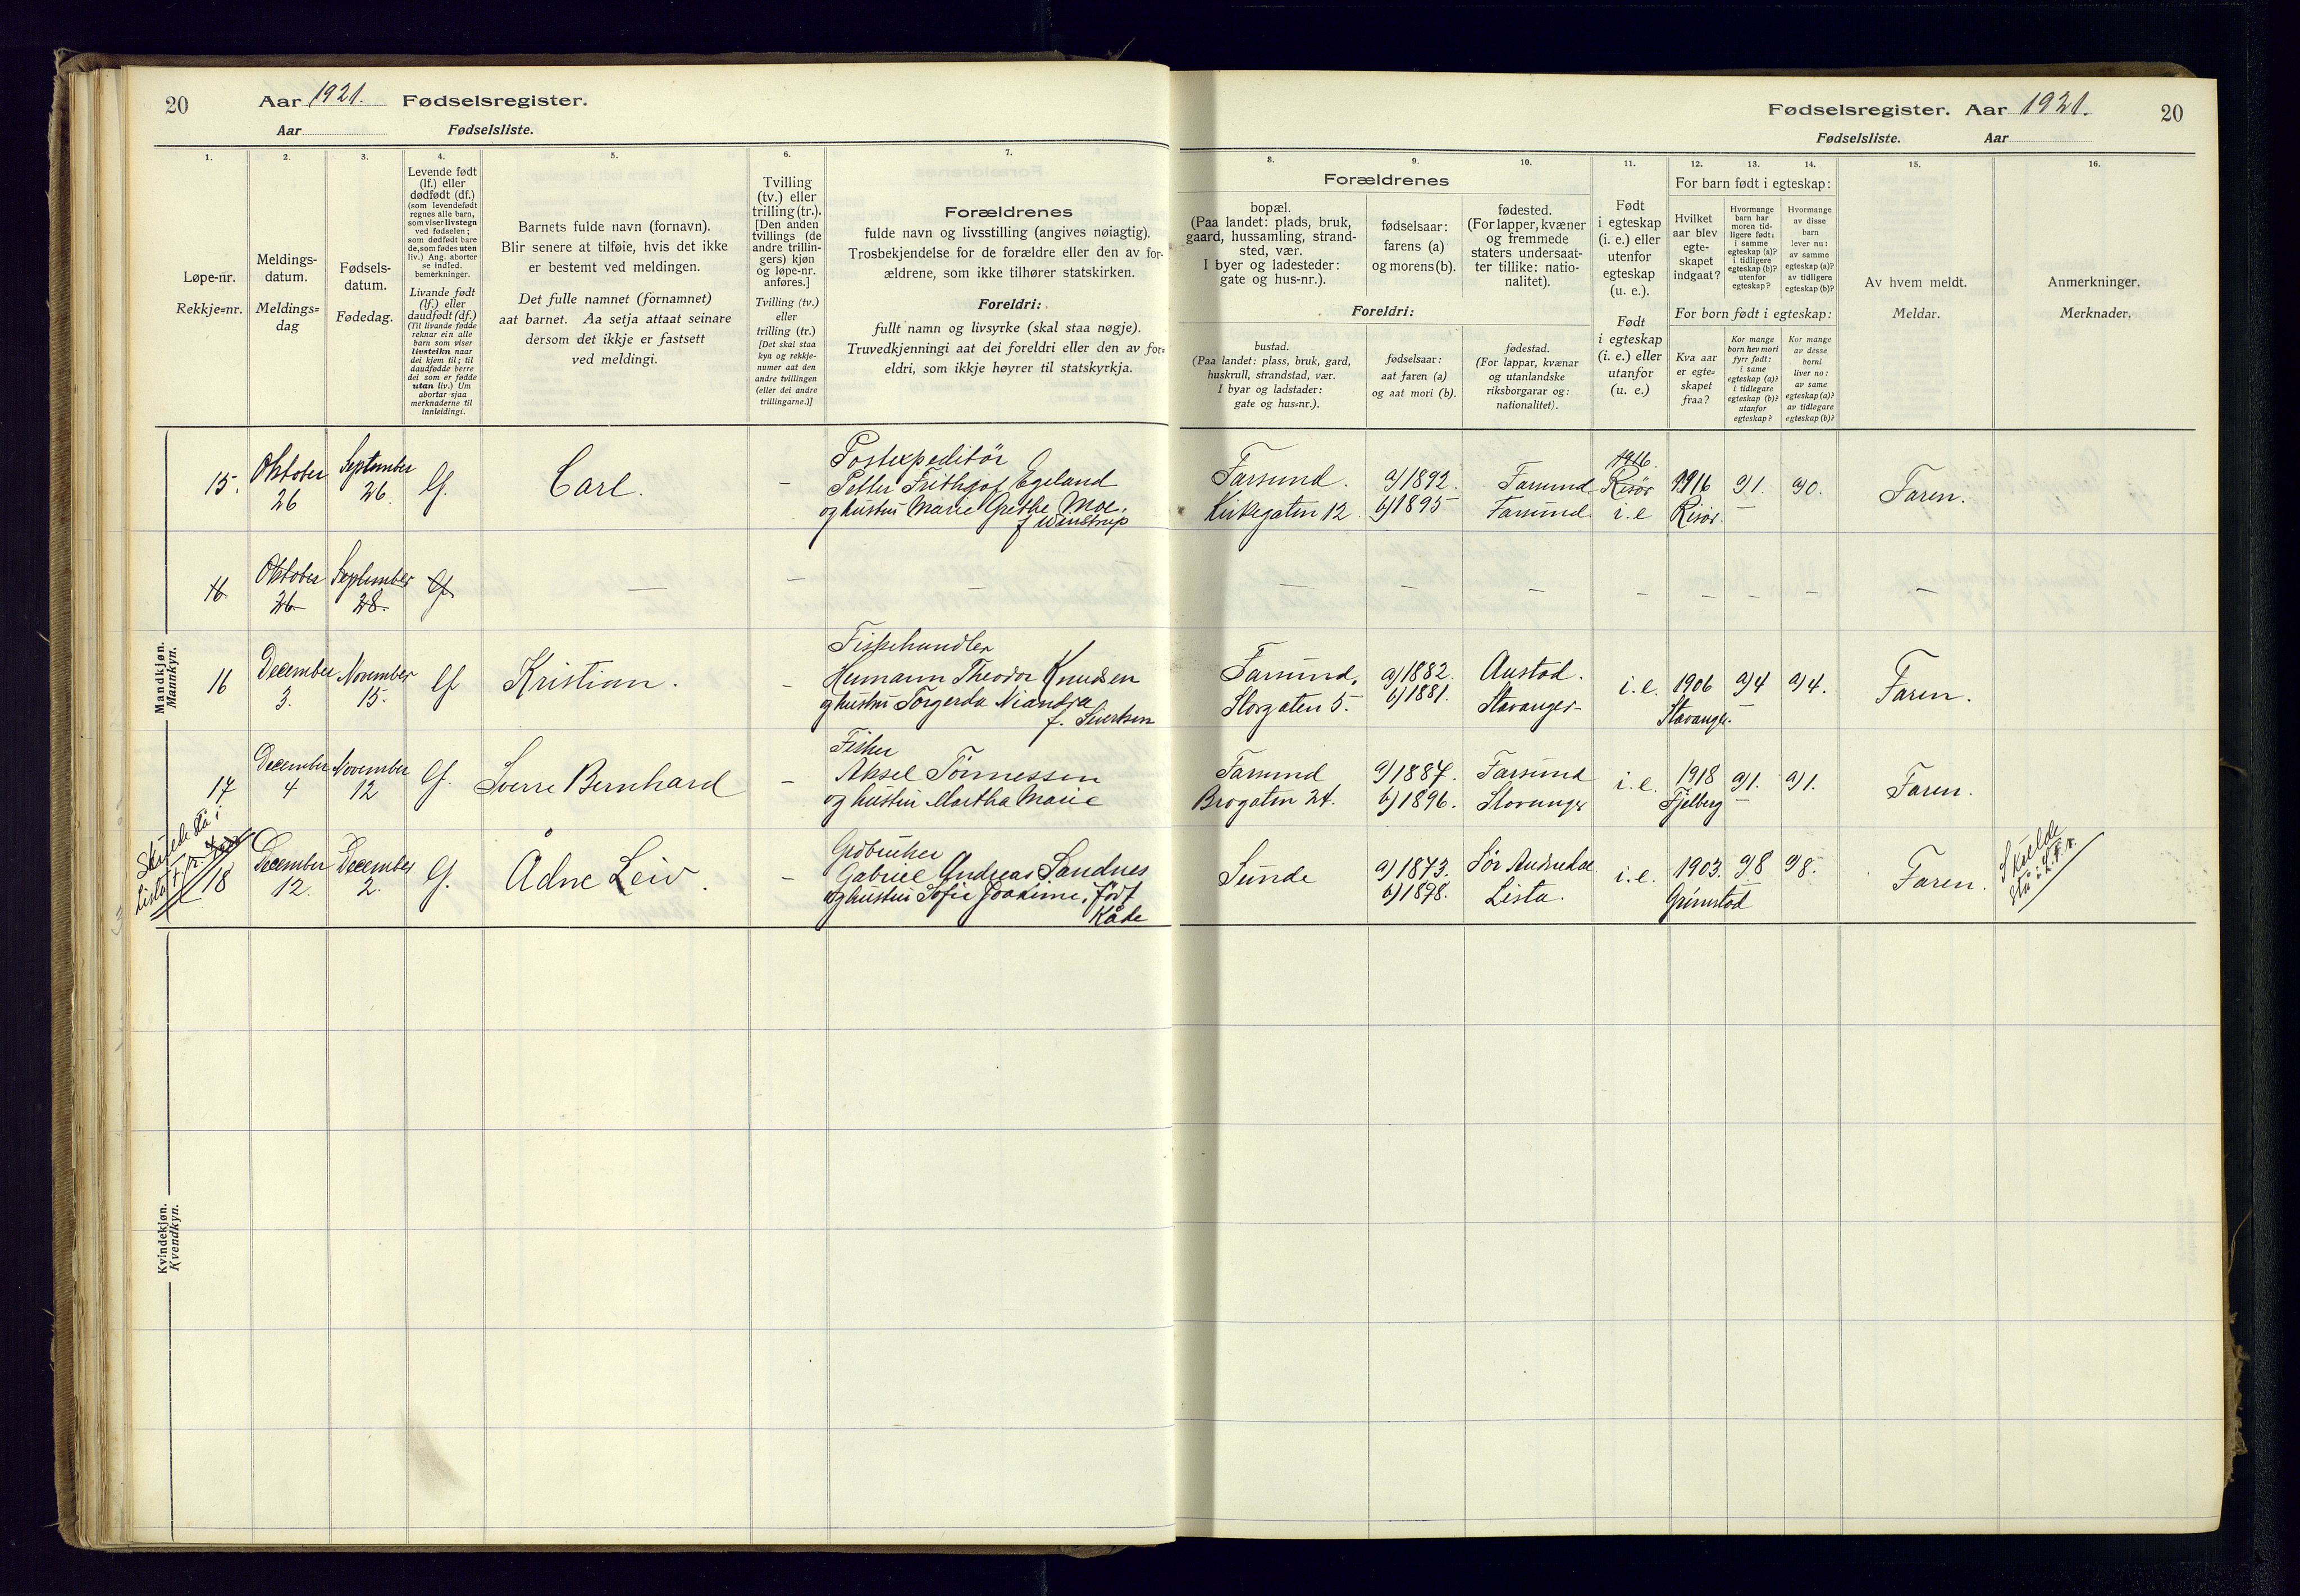 20
Aar 1921. Fødselsregister.
Aar
Fødselsliste.
1.
2.
3.
4.
5.
6.
7.
Løpe-nr.
Rekkje=nr.
Meldings-
datum.
Meldings=
dag
Fødsels-
datum.
Fødedag.
Levende født
(lf.) eller
dødfødt (df.)
(som levendefødt
regnes alle barn,
som viser livstegn
ved fødselen;
som dødfødt bare
de, som fødes uten
liv.) Ang. aborter
se indled.
bemerkninger.
Livande født
(lf.) eller
daudfødt (df.)
(Til livande fødde
reknar ein alle
barn som viser
livsteikn naar
dei kjem til; til
daudfødde berre
dei som er fødde
utan liv.) Um
abortar sjaa
merknaderne til
innleidingi.
Barnets fulde navn (fornavn).
Blir senere at tilføie, hvis det ikke
er bestemt ved meldingen.
Det fulle namnet (fornamnet)
aat barnet. Aa setja attaat seinare
dersom det ikkje er fastsett
ved meldingi.
Tvilling
(tv.) eller
trilling (tr.).
[Den anden
tvillings (de
andre trillin-
gers) kjøn
og løpe-nr.
anføres.]
Tvilling (tv.)
eller
trilling (tr.)
[Det skal staa
kyn og rekkje-
numer aat den
andre tvillingen
(eller dei andre
trillingarne.)]
Forældrenes
fulde navn og livsstilling (angives nøiagtig).
Trosbekjendelse for de forældre eller den av for-
ældrene, som ikke tilhører statskirken.
Foreldri:
fullt namn og livsyrke (skal staa nøgje).
Truvedkjenningi aat dei foreldri eller den av for=
eldri, som ikkje høyrer til statskyrkja.
Mandkjøn.
Mannkyn.
15.
Oktober
26
September
26.
lf.
Carl.
–
Postexpeditør
Petter Frithjof Egeland
og hustru Marie Grethe Moe.
f Winstrup
16
Oktober
26
September
28.
lf
—
—
—
16
December
3.
November
15.
lf
Kristian.
–
Fiskehandler
Hermann Theodor Knudsen
og hustru Torgerda Niandra
f. Sivertsen
17
December
4
November
12
lf.
Sverre Bernhard
–
Fisker
Aksel Tønnessen
og hustru Martha Marie
Skulde stå i
Lista
18
December
12.
December
2.
lf.
Ådne Leiv.
–
Grdbruker
Gabriel Andreas Sandnes
og hustru Sofie Joakime, født
Kåde
Kvindekjøn.
Kvendkyn.
Fødselsregister. Aar 1921.
20
Fødselsliste.
Aar
8.
9.
10.
11.
12.
13.
14.
15.
16.
Forældrenes
bopæl.
(Paa landet: plads, bruk,
gaard, hussamling, strand-
sted, vær.
I byer og ladesteder:
gate og hus-nr.).
fødselsaar:
farens (a)
og morens (b).
fødested.
(For lapper, kvæner
og fremmede
staters undersaat-
ter tillike: natio-
nalitet).
Foreldri:
bustad.
(Paa landet: plass, bruk, gard,
huskrull, strandstad, vær.
I byar og ladstader:
gate og hus=nr.).
fødselsaar:
aat faren (a)
og aat mori (b).
fødestad.
(For lappar, kvænar
og utanlandske
riksborgarar og:
nationalitet).
Født
i egteskap
(i. e.) eller
utenfor
egteskap
(u. e.).
Født
i egteskap
(i. e.) eller
utanfor
(u. e.)
For barn født i egteskap:
Hvilket
aar blev
egte-
skapet
indgaat?
Hvormange
barn har
moren tid-
ligere født:
i samme
egteskap (a)?
i tidligere
egteskap (b)?
utenfor
egteskap?
Hvormange
av disse
barn
lever nu:
av samme
egteskap (a)?
av tidligere
egteskap (b)?
For born født i egteskap:
Kva aar
er egte=
skapet
fraa?
Kor mange
born hev mori
fyrr født:
i same
egteskap (a)?
i tidlegare
egteskap (b)?
utanfor
egteskap?
Kor mange
av desse
borni
liver no:
av same
egteskap (a)?
av tidlegare
egteskap (b)?
Av hvem meldt.
Meldar.
Anmerkninger.
Merknader.
Farsund.
Kirkegaten 12.
a) 1892.
b) 1895
Farsund
Farsund.
1916.
Risør
i. e
1916
Risør.
a) 1.
–
a) 0.
Faren.
—
—
—
–
–
–
–
–
Farsund.
Storgaten 5.
a) 1882
b) 1881.
Austad.
Stavanger
i. e.
1906
Stavanger.
a) 4
–
a) 4.
Faren.
Farsund
Brogaten 24.
a) 1887.
b) 1896.
Farsund
Stavanger
i. e.
1918
Fjelberg
a) 1.
–
a) 1.
Faren.
Sunde
a) 1873.
b) 1878.
Sør Audnedal
Lista.
i. e.
1903.
Grimstad
a) 8
a) 8.
Faren.
Skulde
stå i